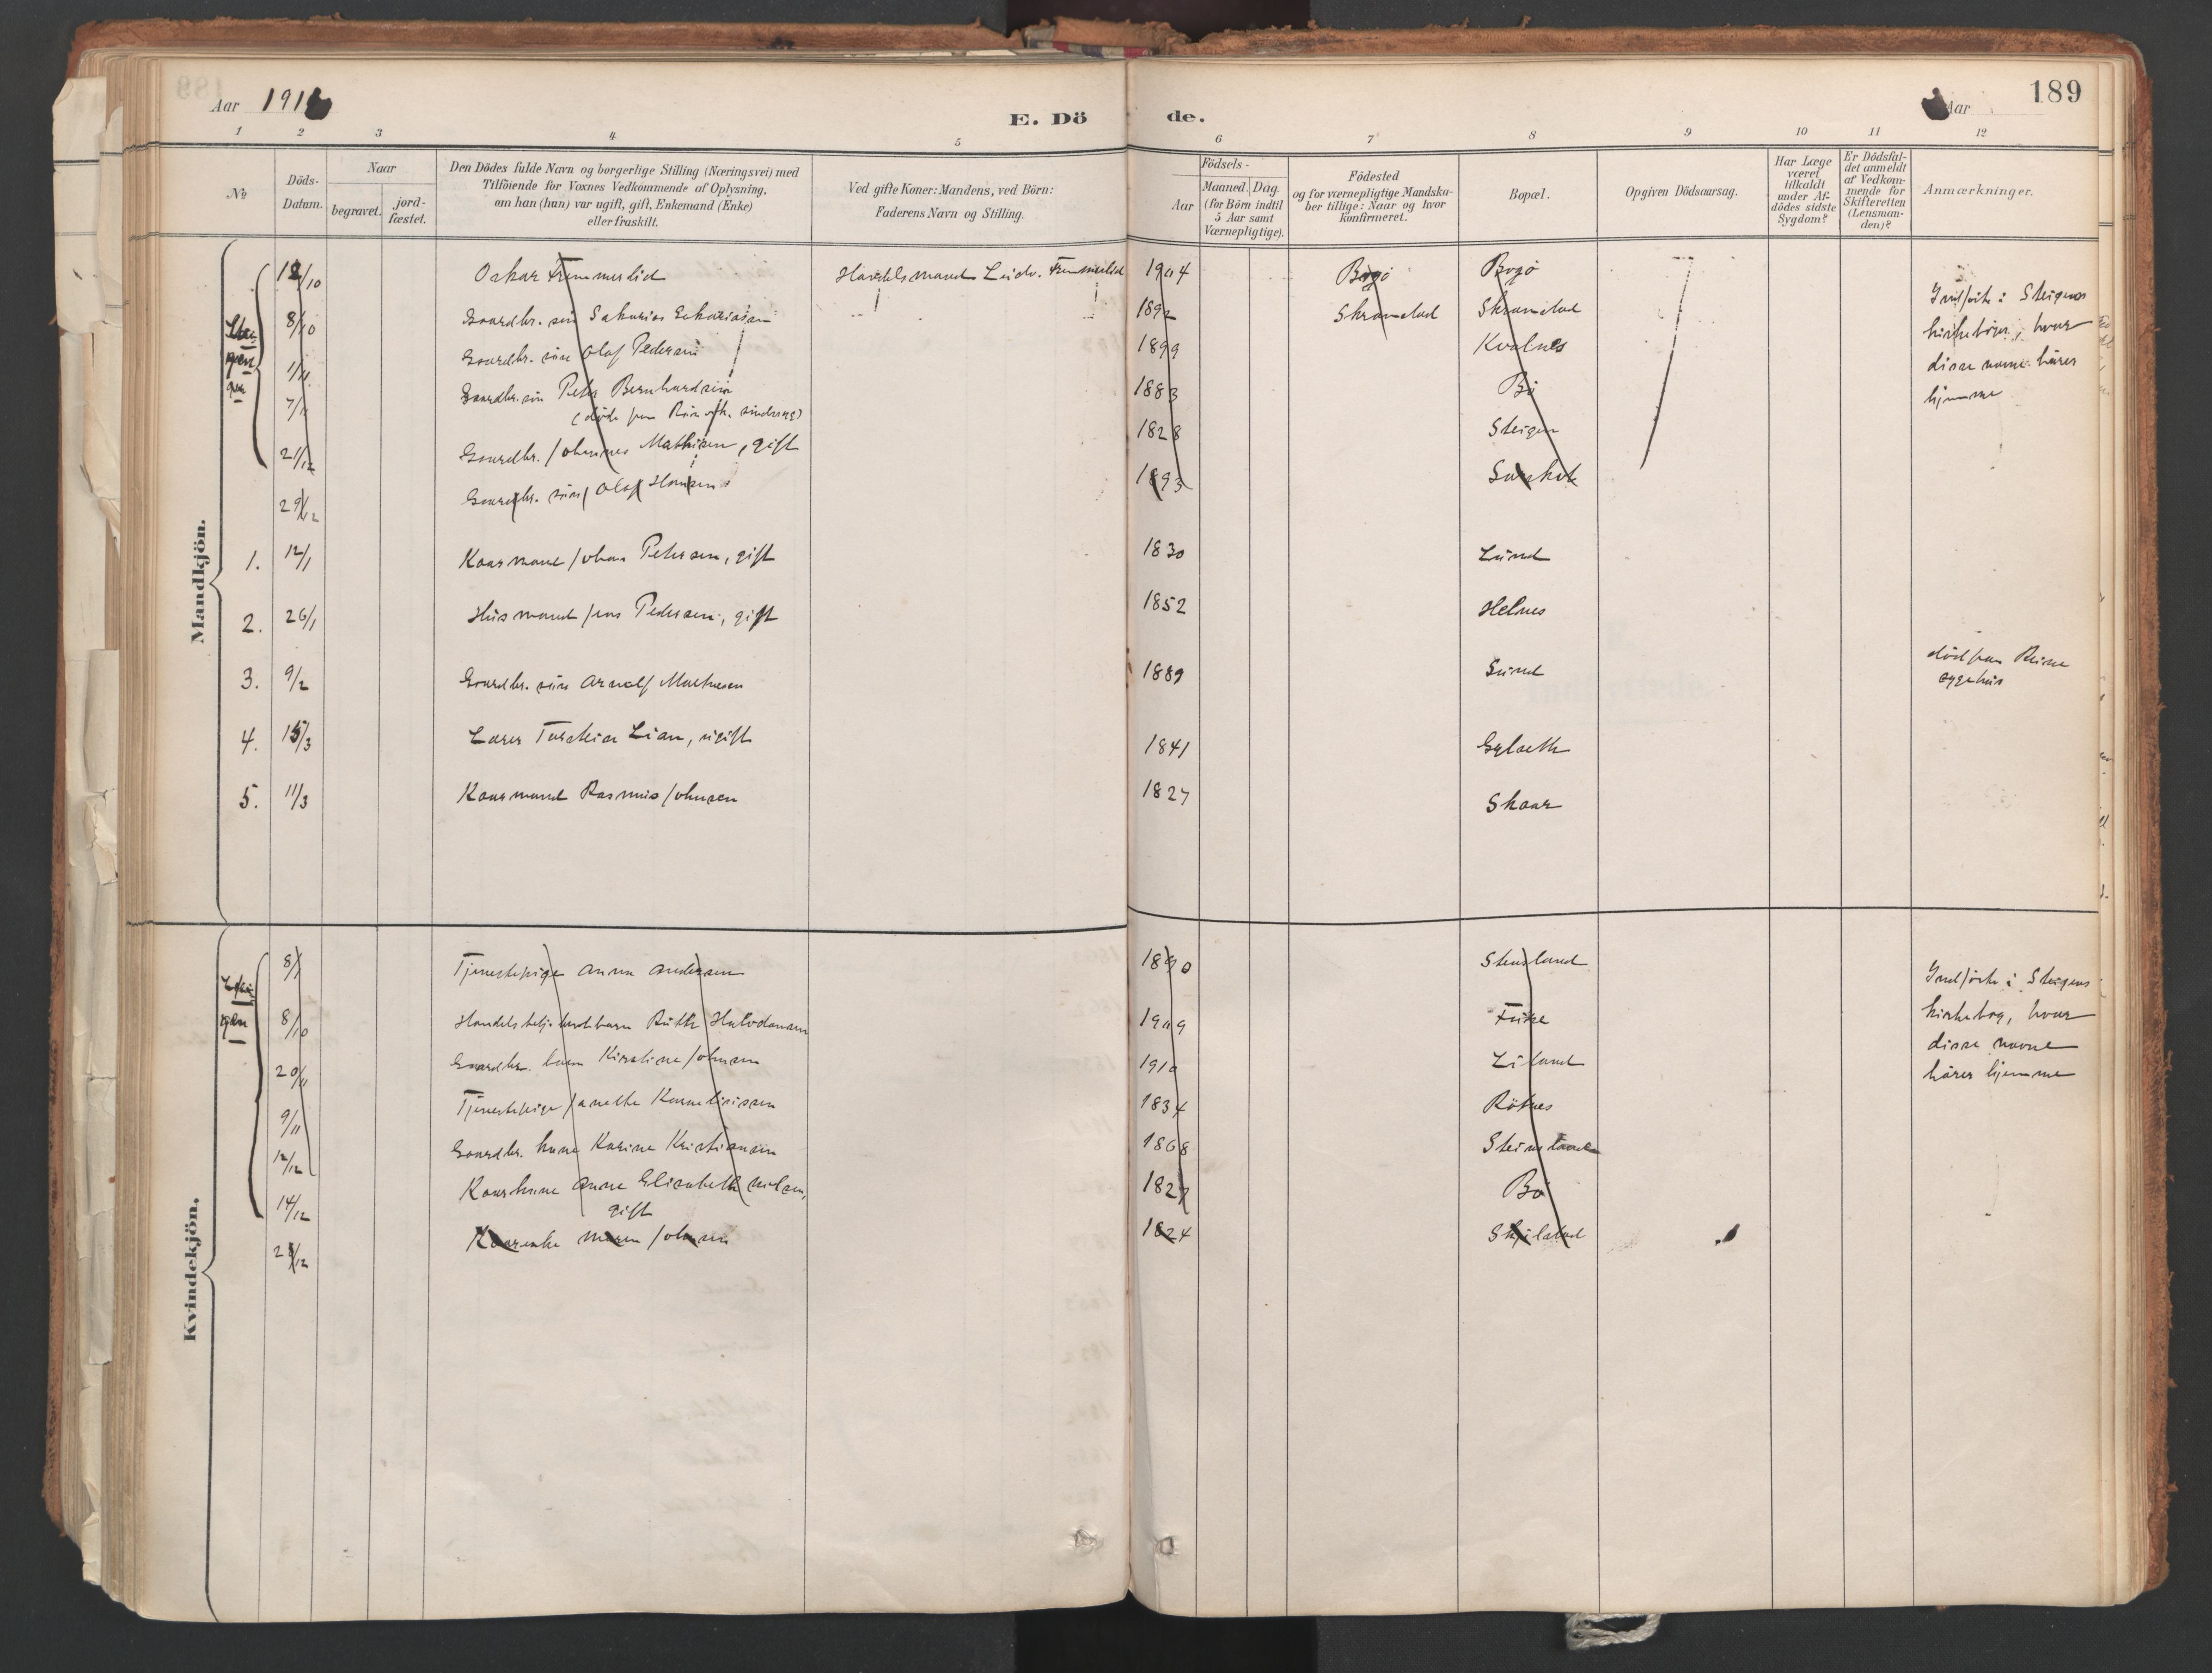 Aar 191
E. Dö de.
Aar
189
1 2 3 4 5 6 7 8 9 10 11 12
No
Döds-Datum.
Naar
begravet.
jord-fæstet.
Den Dödes fulde Navn og borgerlige Stilling (Næringsvei) med
Tilföiende for Voxnes Vedkommende af Oplysning,
om han (hun) var ugift, gift, Enkemand (Enke)
eller fraskilt.
Ved gifte Koner: Mandens, ved Börn:
Faderens Navn og Stilling.
Födsels-
Aar
Maaned. Dag.
(for Börn indtil
5 Aar samt
Værnepligtige).
Födested
og for værnepligtige Mandska-
ber tillige: Naar og hvor
konfirmeret.
Bopæl.
Opgiven Dödsaarsag.
Har Læge
været
tilkaldt
under Af-
dödes sidste
Sygdom?
Er Dödsfal-
det anmeldt
af Vedkom-
mende for
Skifteretten
(Lensman-
den)?
Anmærkninger.
Mandkjön.
/10 Oskar Handelsmand Ludv. 1904 Bogö Bogö
8/10 Gaardbr. sön Sakarias Sakariasen 1892 Skranstad Skranstad
1/11 Gaardbr. sön Olaf Pedersen 1899 Kvalnes
7/11 Gaardbr. sön Peter Bernhardsen 1883 Bö
21/12 Gaardbr. Johannes Mathisen, gift 1828 Steigen
29/12 Gaardbr. sön Olaf Hansen 1893
Indförte i Steigens
kirkebog, hvor
disse navne hörer
hjemme
1. 12/1 Kaarmand Johan Petersen, gift 1830 Lund
2. 26/1 Husmand Jens Pedersen, gift 1852 Helnes
3. 9/2 Gaardbr. sön Arnolf Mathesen 1889 Sund död paa Reine
sygehus
4. 15/3 Lærer Torstein Lian, ugift 1841
5. 11/3 Kaarmand Rasmus Johnsen 1827 Skaar
Kvindekjön.
8/1 Tjenestepige Anna Andersen 1890 Stensland
8/10 Ruth Halvdansen 1909
20/11 Gaardbr. barn Kirstine Johnsen 1910 Liland
9/11 Tjenestepige Janethe Korneliussen 1834 Rötnes
12/12 Gaardbr. kone Karine Kristiansen 1868
14/12 Kaarkone Anne Elisabeth Nilsen,
gift Bö
/12 Kaarenke Maren Johnsen 1824 Skjelstad
Indförte i Steigens
kirkebog, hvor
disse navne
hörer hjemme